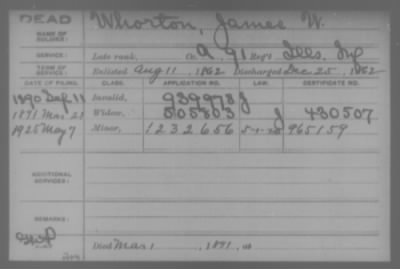 DEAD
Whorton, James W.
NAME OF SOLDIER:
SERVICE: Late rank, Co. A, 91 Reg't Ills. Inf
TERM OF SERVICE: Enlisted Aug 11, 1862 Discharged Dec 25, 1862
DATE OF FILING. CLASS. APPLICATION NO. LAW. CERTIFICATE NO.
1890 Sep 11 Invalid, 939978 J
1891 Mar 28 Widow, 505803 J 430507
1925 May 7 Minor, 1232656 5-1-20 965159
ADDITIONAL SERVICES:
REMARKS:
Died Mar 1, 1891,